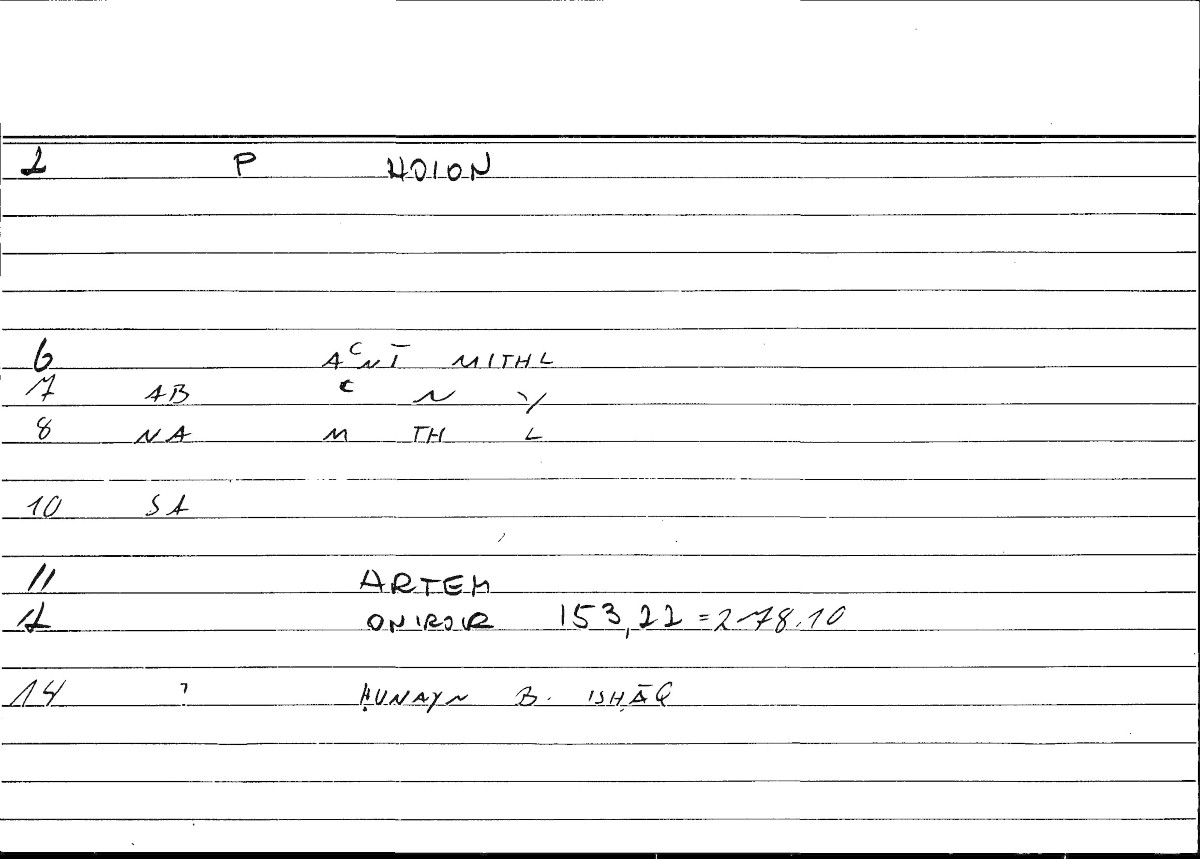 1 P HDION
6 AᶜNĪ MITHL
7 AB ᶜ N Y
8 NA M TH L
10 SA
11 ARTEM
12 ONIROIR 153,22 =278.10
14 ? ḤUNAYN B. ISḤĀQ